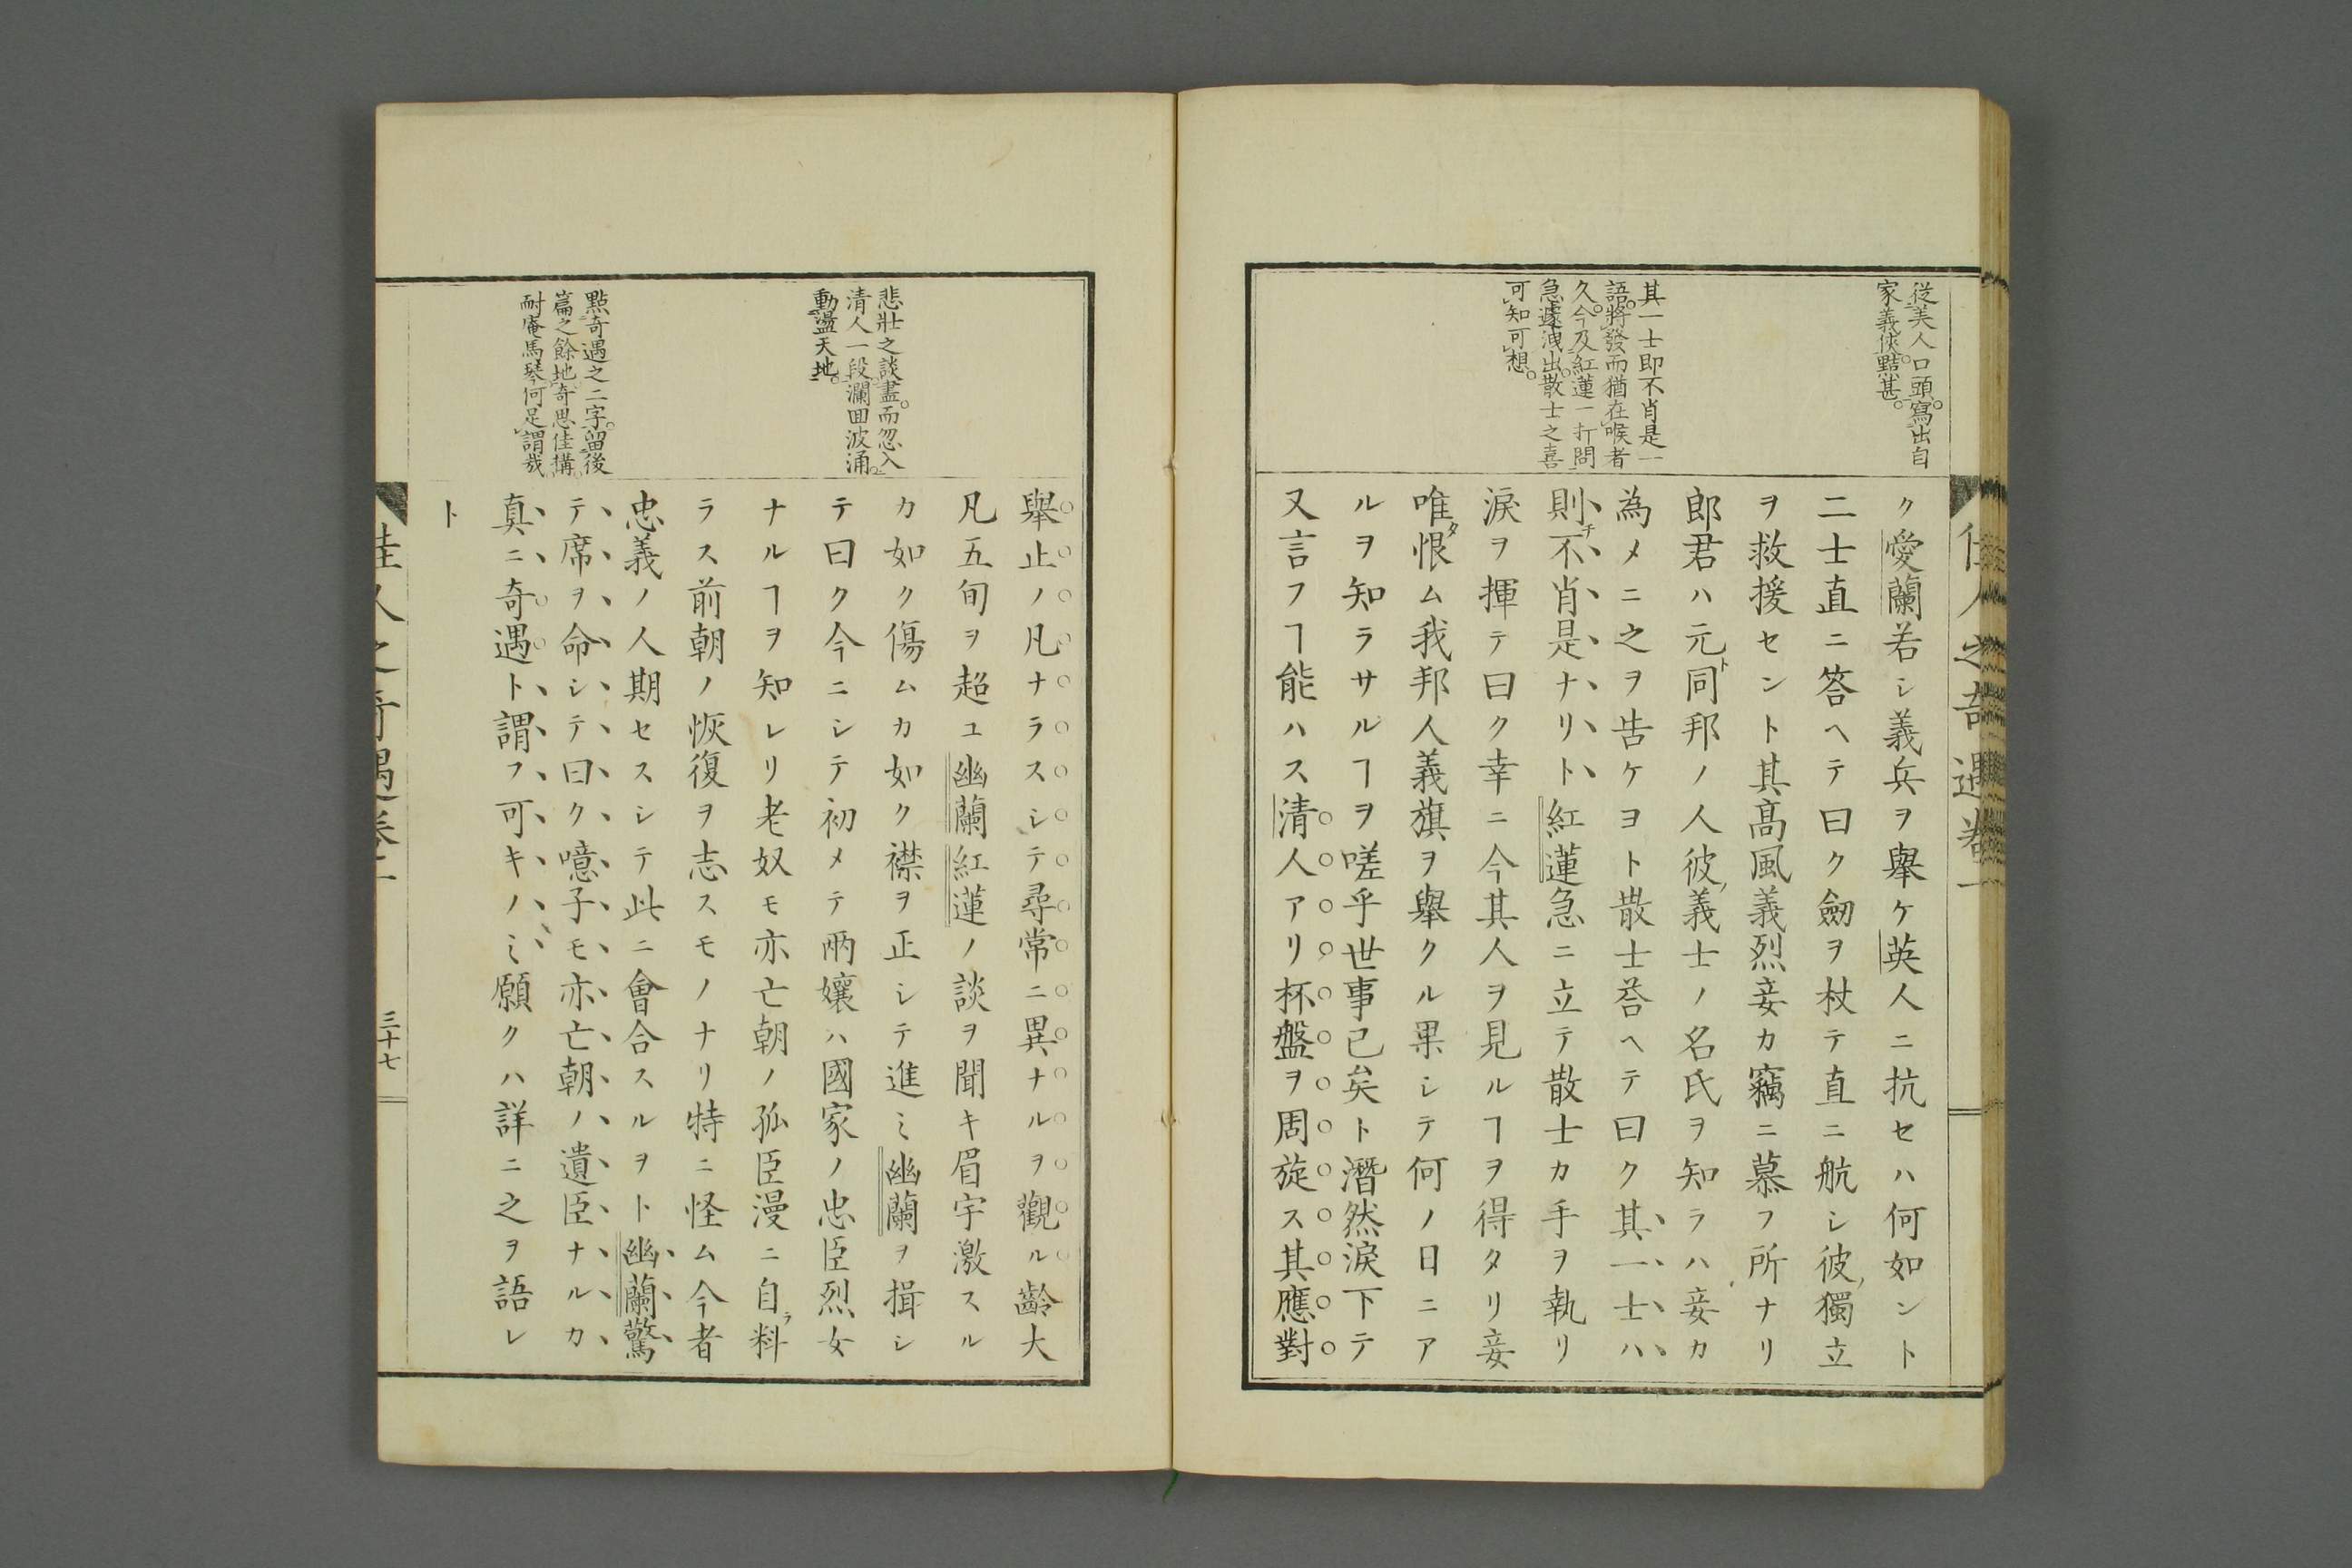 佳人之奇遇卷一
從美人口頭。寫出自
家義俠。黠甚。
其一士即不肖是一
語。將發而猶在喉者
久。今及紅蓮一打問
急遽洩出。散士之喜
可知可想。
ク愛蘭若シ義兵ヲ擧ケ英人ニ抗セハ何如ント
二士直ニ答ヘテ曰ク劒ヲ杖テ直ニ航シ彼ノ獨立
ヲ救援セント其髙風義烈妾カ竊ニ慕フ所ナリ
郎君ハ元ト同邦ノ人彼ノ義士ノ名氏ヲ知ラハ妾カ
為メニ之ヲ告ケヨト散士荅ヘテ曰ク其一士ハ
則チ不肖是ナリト紅蓮急ニ立テ散士カ手ヲ執リ
淚ヲ揮テ曰ク幸ニ今其人ヲ見ルヿヲ得タリ妾
唯タ恨ム我邦人義旗ヲ擧クル果シテ何ノ日ニア
ルヲ知ラサルヿヲ嗟乎世事已矣ト潛然淚下テ
又言フヿ能ハス清人アリ杯盤ヲ周旋ス其應對
悲壯之談盡。而忽入
清人一段瀾回波涌。
動盪天地。
點奇遇之二字。留後
篇之餘地。奇思佳構。
耐庵馬琴何足謂哉
擧止ノ凡ナラスシテ尋常ニ異ナルヲ觀ル齡大
凡五旬ヲ超ユ幽蘭紅蓮ノ談ヲ聞キ眉宇激スル
カ如ク傷ムカ如ク襟ヲ正シテ進ミ幽蘭ヲ揖シ
テ曰ク今ニシテ初メテ兩孃ハ國家ノ忠臣烈女
ナルヿヲ知レリ老奴モ亦亡朝ノ孤臣漫ニ自ラ料
ラス前朝ノ恢復ヲ志スモノナリ特ニ怪ム今者
忠義ノ人期セスシテ此ニ會合スルヲト幽蘭驚
テ席ヲ命シテ曰ク噫子モ亦亡朝ノ遺臣ナルカ
真ニ奇遇ト謂フ可キノミ願クハ詳ニ之ヲ語レ
ト
佳人之奇遇卷一
三十七